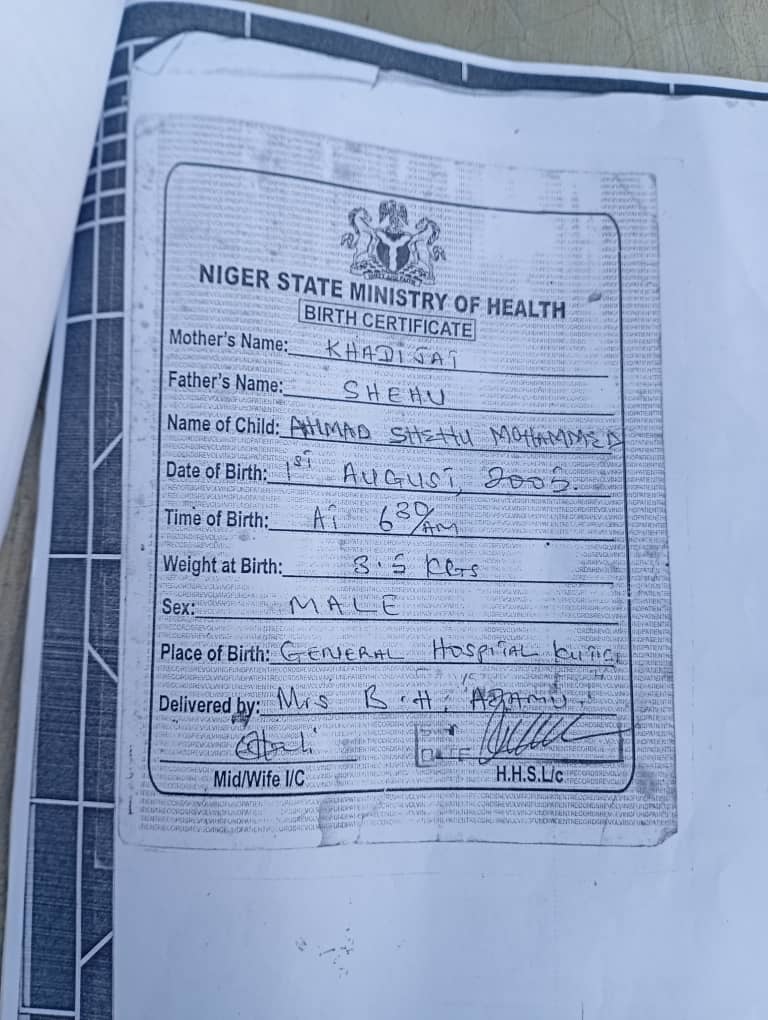 NIGER STATE MINISTRY OF HEALTH
BIRTH CERTIFICATE
Mother's Name: KHADIJAT
Father's Name: SHEHU
Name of Child: AHMAD SHEHU MOHAMMED
Date of Birth: 1st AUGUST, 2005.
Time of Birth: At 630/AM
Weight at Birth: 3.5 KGS
Sex: MALE
Place of Birth: GENERAL HOSPITAL
Delivered by: Mrs B.H. ADAMU.
DATE
Mid/Wife I/C H.H.S.L/c